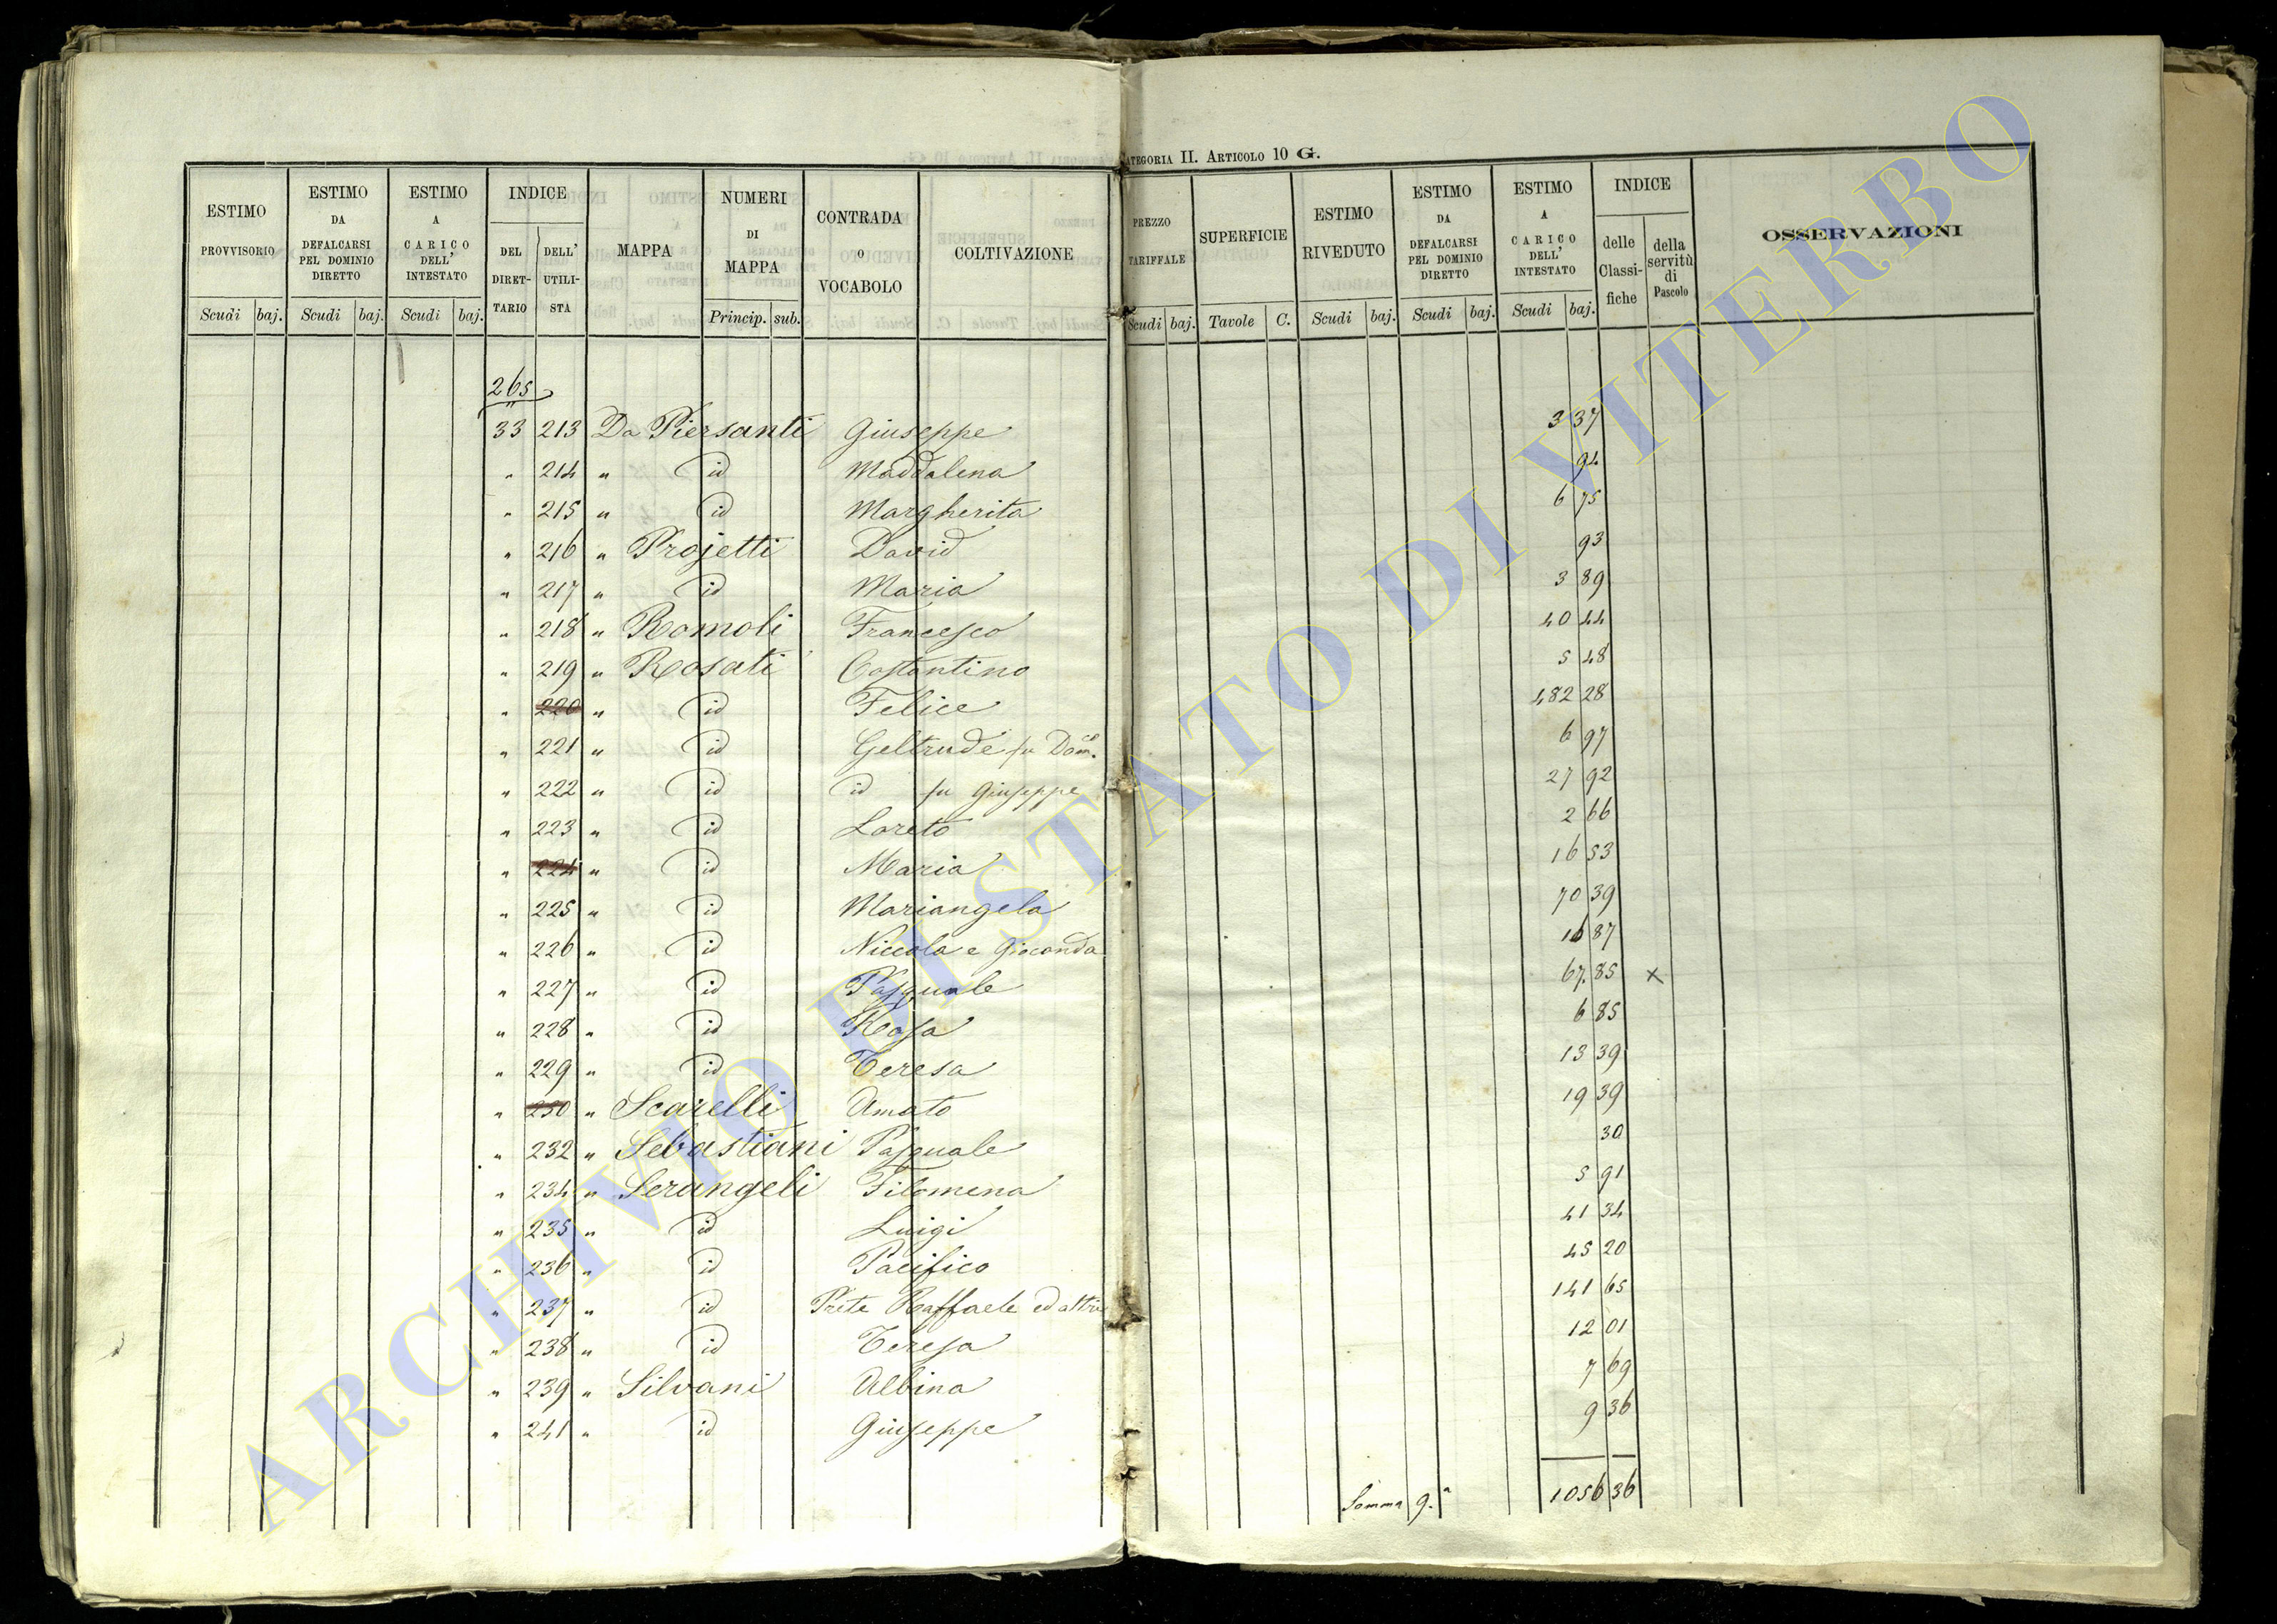 CATEGORIA II. ARTICOLO 10 G.
ESTIMO PROVVISORIO Scudi baj.
ESTIMO DA DEFALCARSI PEL DOMINIO DIRETTO Scudi baj.
ESTIMO A CARICO DELL' INTESTATO Scudi baj.
INDICE DEL DIRET-TARIO DELL' UTILI-STA
MAPPA
NUMERI DI MAPPA Princip. sub.
CONTRADA o VOCABOLO
COLTIVAZIONE
PREZZO TARIFFALE Scudi baj.
SUPERFICIE Tavole C.
ESTIMO RIVEDUTO Scudi baj.
ESTIMO DA DEFALCARSI PEL DOMINIO DIRETTO Scudi baj.
ESTIMO A CARICO DELL' INTESTATO Scudi baj.
INDICE delle Classi-fiche della servitù di Pascolo
OSSERVAZIONI
265
33 213 Da Piersanti Giuseppe 3 37
" 214 " id Maddalena 94
" 215 " id Margherita 6 75
" 216 " Projetti David 93
" 217 " id Maria 3 89
" 218 " Romoli Francesco 40 44
" 219 " Rosati Costantino 5 48
" 220 " id Felice 482 28
" 221 " id Geltrude fu Dom.co 6 97
" 222 " id id fu Giuseppe 27 92
" 223 " id Loreto 2 66
" 224 " id Maria 16 53
" 225 " id Mariangela 70 39
" 226 " id Niccola e Gioconda 16 87
" 227 " id Pasquale 67. 85 x
" 228 " id Rosa 6 85
" 229 " id Teresa 13 39
" 230 " Scarelli Amato 19 39
" 232 " Sebastiani Pasquale 30
" 234 " Serangeli Filomena 5 91
" 235 " id Luigi 41 34
" 236 " id Pacifico 45 20
" 237 " id Prete Raffaele ed altri 141 65
" 238 " id Teresa 12 01
" 239 " Silvani Albina 7 69
" 241 " id Giuseppe 9 36
Somma 9.a 1056 36
ARCHIVIO DI STATO DI VITERBO